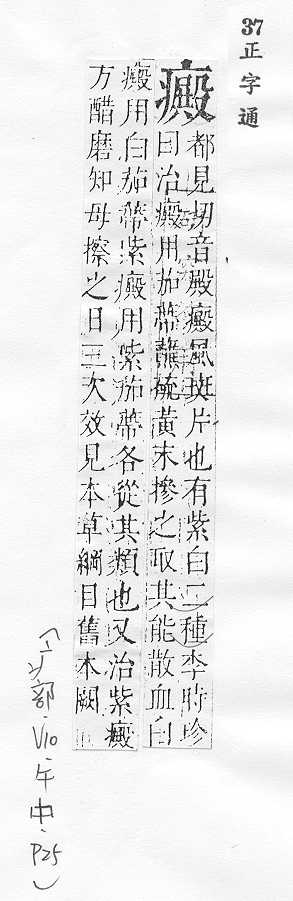 37正字通
癜
都見切音殿癜風斑片也有紫白二種李時珍
曰治癜用茄蒂蘸硫黃末摻之取其能散血白
癜用白茄蒂紫癜用紫茄蒂各從其類也又治紫癜
方醋磨知母擦之日三次效見本草綱目舊本闕
(疒部.V10.午中.P25)